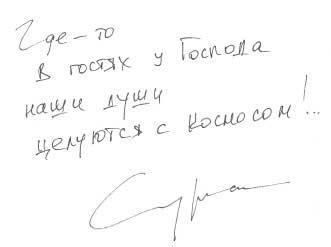 Где-то
в гостях у Господа
наши души
целуются с космосом!..